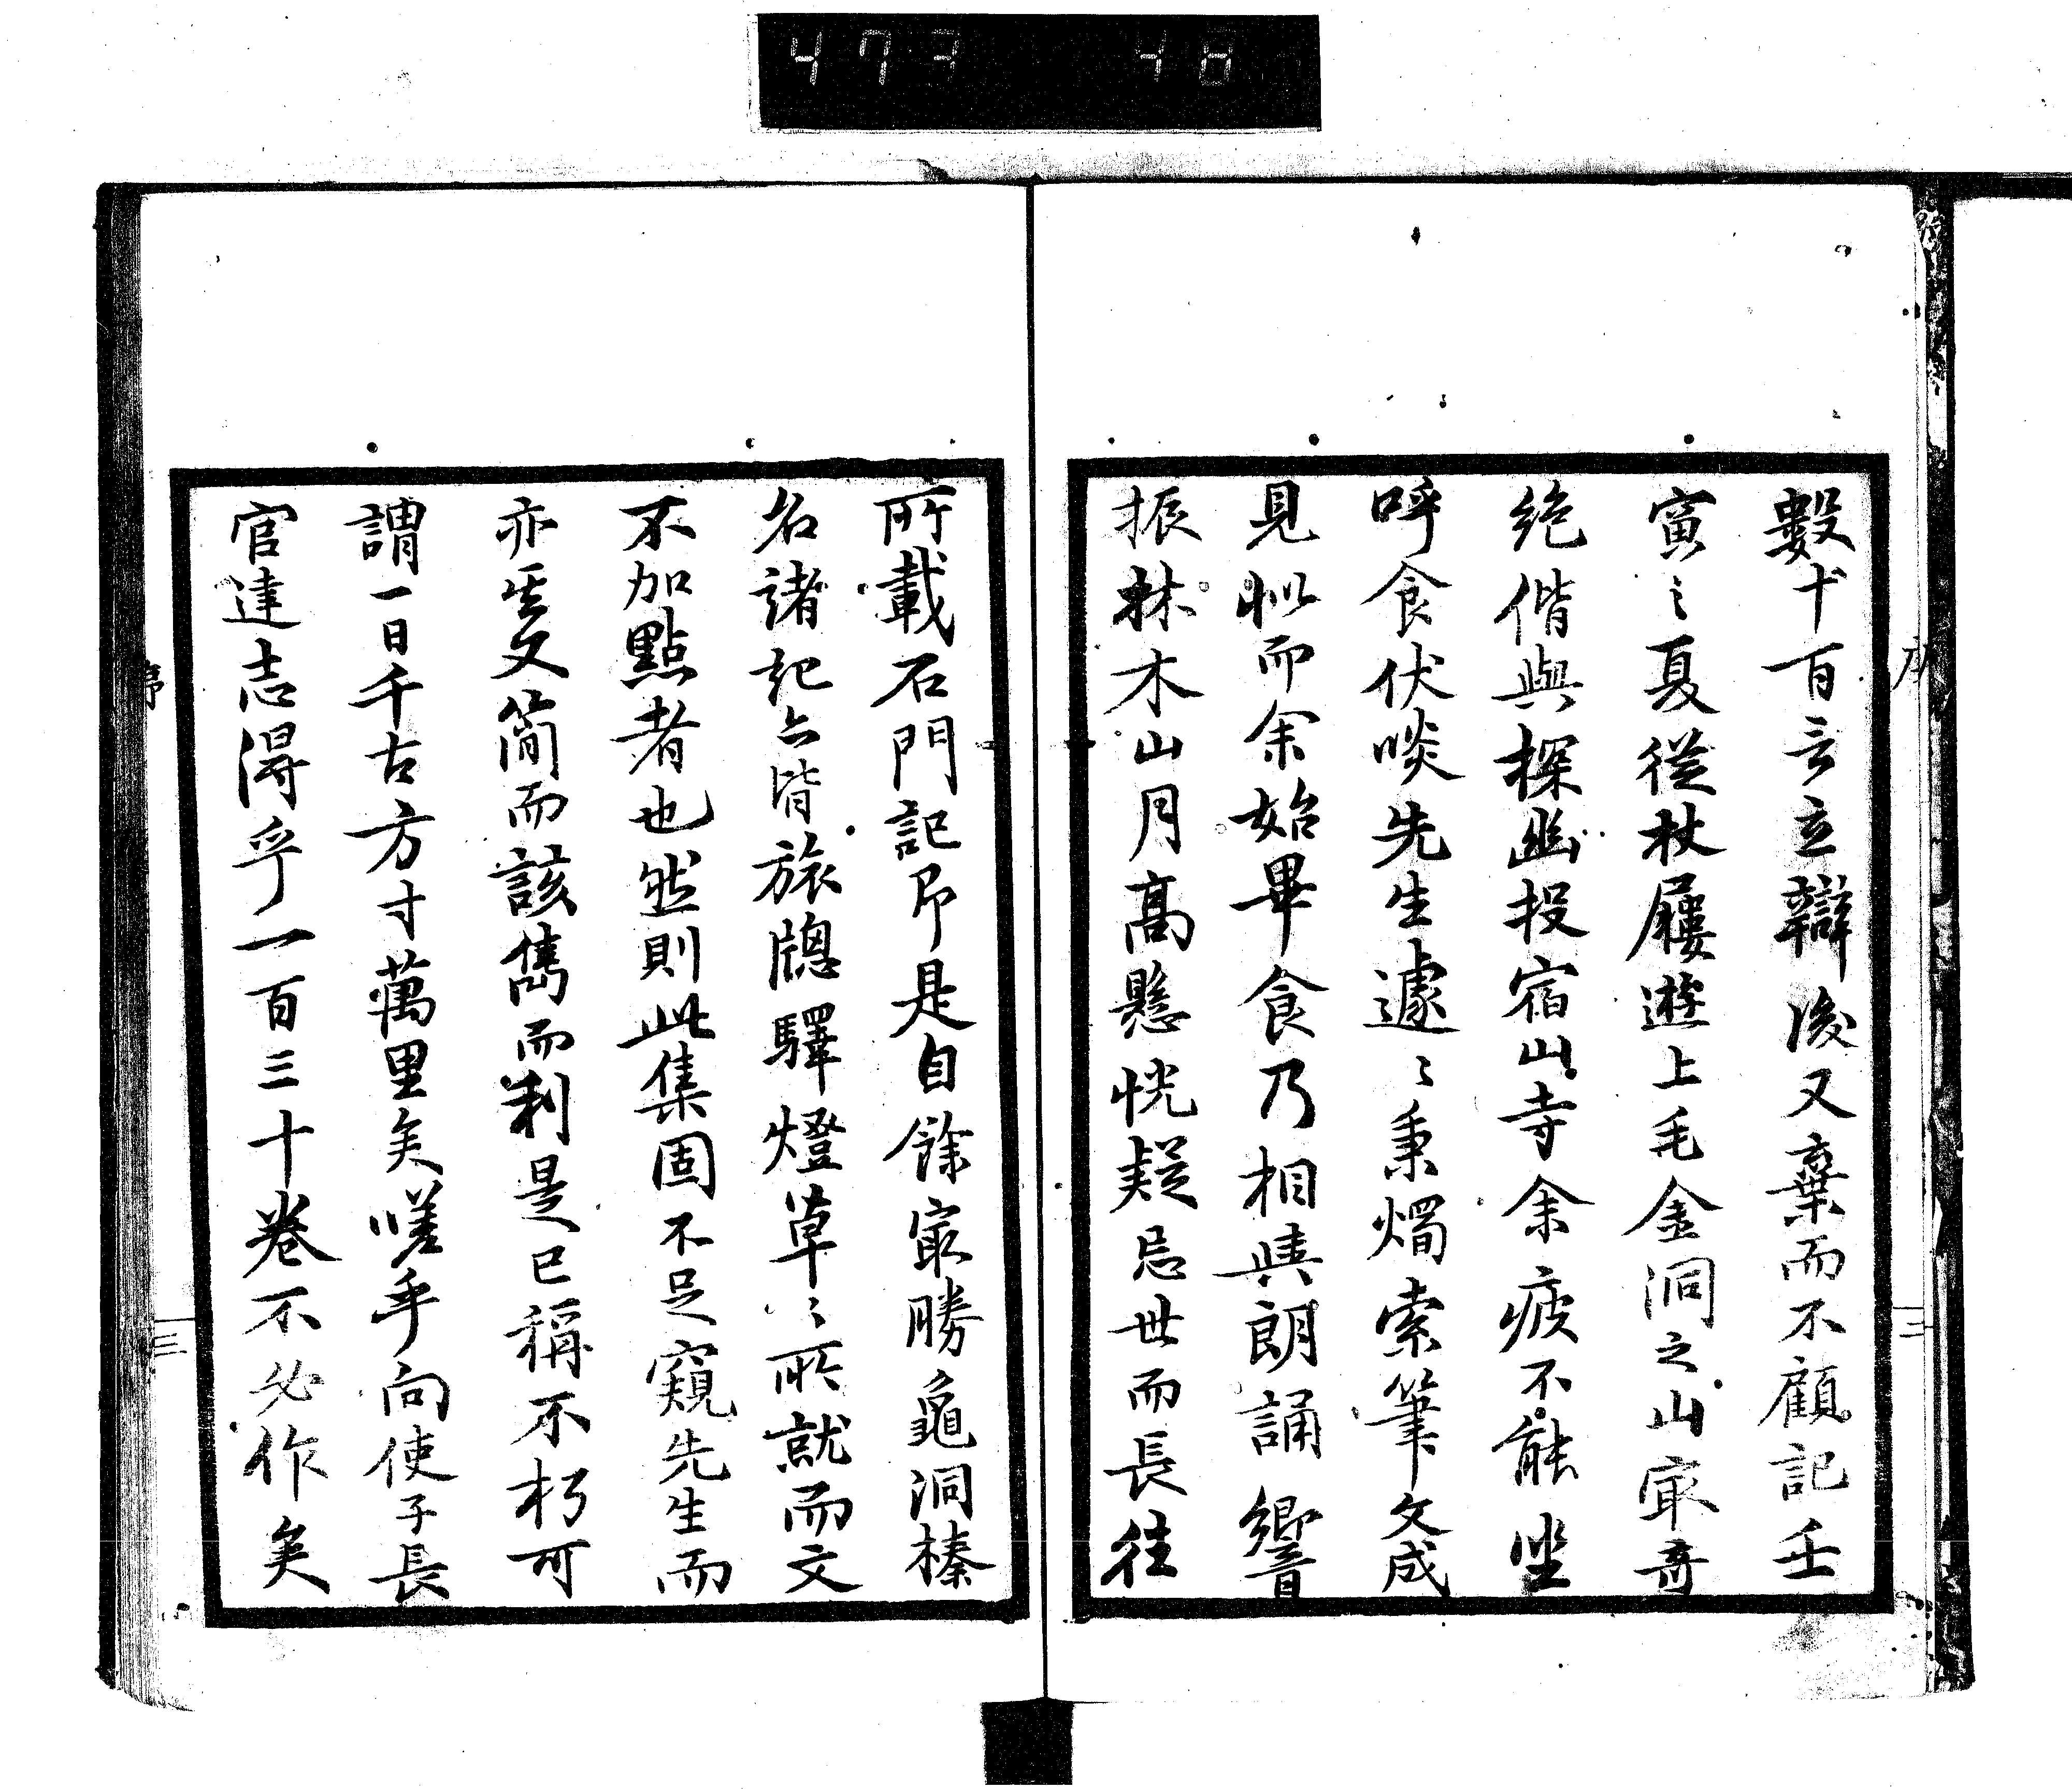 473 48
數十百言立辯後又棄而不顧記壬
寅之夏從杖屨遊上毛金洞之山寂奇
絶偕與探幽投宿山寺余疲不能坐
呼食伏啖先生遽〻秉燭索筆文成
見眎而余始畢食乃相與朗誦響
振林木山月高懸恍疑忘世而長往
所載石門記即是自餘寂勝龜洞榛
名諸記亦皆旅牕驛燈草〻所就而文
不加點者也然則此集固不足窺先生而
亦其文簡而該雋而利是已稱不朽可
謂一日千古方寸萬里矣嗟乎向使子長
官達志得乎一百三十卷不必作矣
序
三